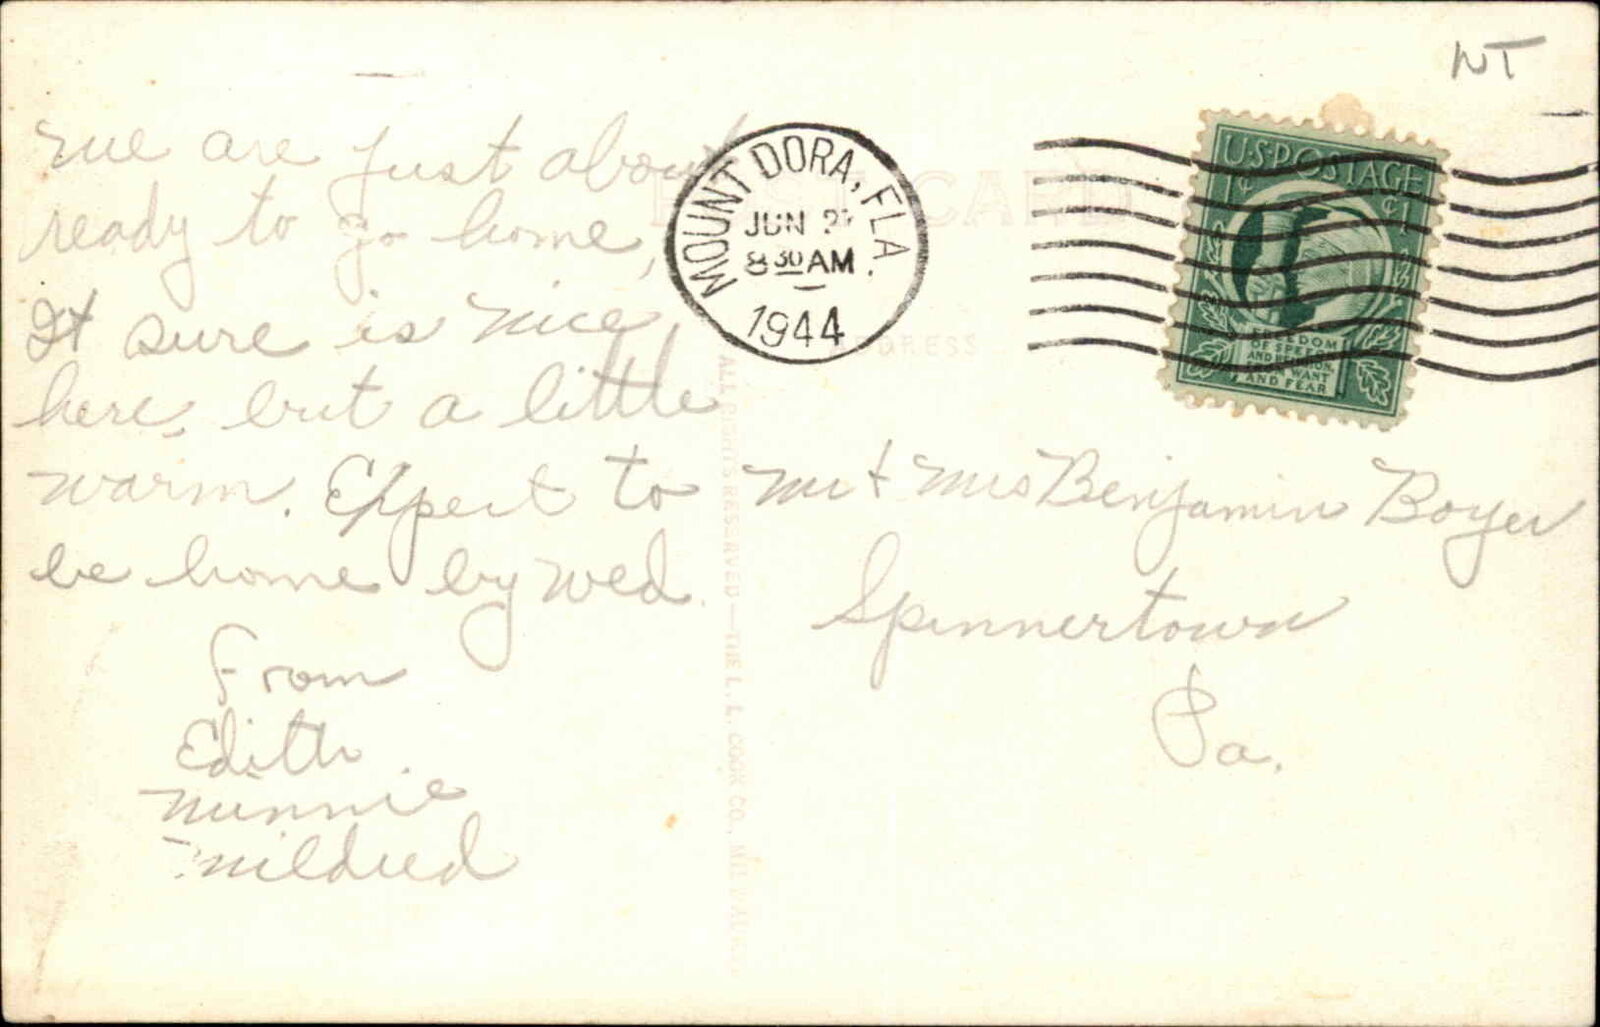 NT
We are just about
ready to go home,
It sure is nice
here, but a little
warm. Expect to
be home by Wed.
From
Edith
Minnie
Mildred
MOUNT DORA, FLA.
JUN
8 30 AM
1944
U·S·POSTAGE
1¢ ¢1
FREEDOM
OF SPEECH
AND RELIGION,
FROM WANT
AND FEAR
POST CARD
ADDRESS
ALL RIGHTS RESERVED—THE L. L. COOK CO., MILWAUKEE
Mr & Mrs Benjamin Boyer
Spinnertown
Pa.